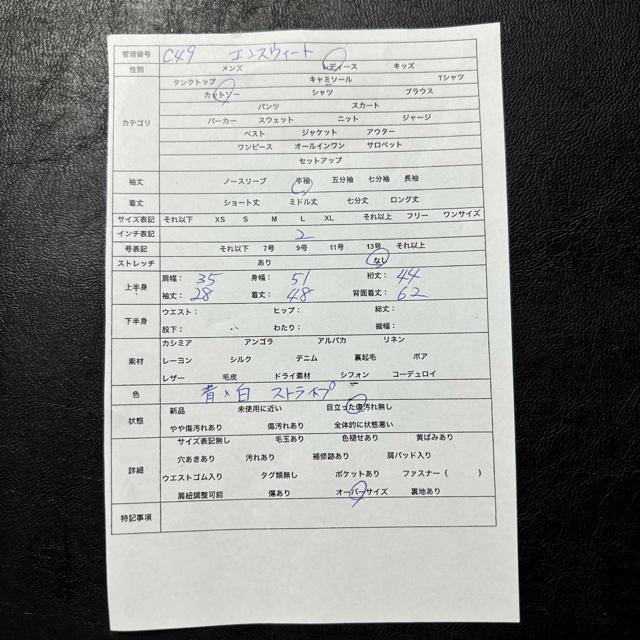 管理番号 C49 エンスウィート
性別 メンズ レディース キッズ
カテゴリ
タンクトップ キャミソール Tシャツ
カットソー シャツ ブラウス
パンツ スカート
パーカー スウェット ニット ジャージ
ベスト ジャケット アウター
ワンピース オールインワン サロペット
セットアップ
袖丈 ノースリーブ 半袖 五分袖 七分袖 長袖
着丈 ショート丈 ミドル丈 七分丈 ロング丈
サイズ表記 それ以下 XS S M L XL それ以上 フリー ワンサイズ
インチ表記 2
号表記 それ以下 7号 9号 11号 13号 それ以上
ストレッチ あり なし
上半身
肩幅: 35 身幅: 51 裄丈: 44
袖丈: 28 着丈: 48 背面着丈: 62
下半身
ウエスト: ヒップ: 総丈:
股下: わたり: 裾幅:
素材
カシミア アンゴラ アルパカ リネン
レーヨン シルク デニム 裏起毛 ボア
レザー 毛皮 ドライ素材 シフォン コーデュロイ
色 青×白 ストライプ
状態
新品 未使用に近い 目立った傷汚れ無し
やや傷汚れあり 傷汚れあり 全体的に状態悪い
詳細
サイズ表記無し 毛玉あり 色褪せあり 黄ばみあり
穴あきあり 汚れあり 補修跡あり 肩パッド入り
ウエストゴム入り タグ類無し ポケットあり ファスナー( )
肩紐調整可能 傷あり オーバーサイズ 裏地あり
特記事項